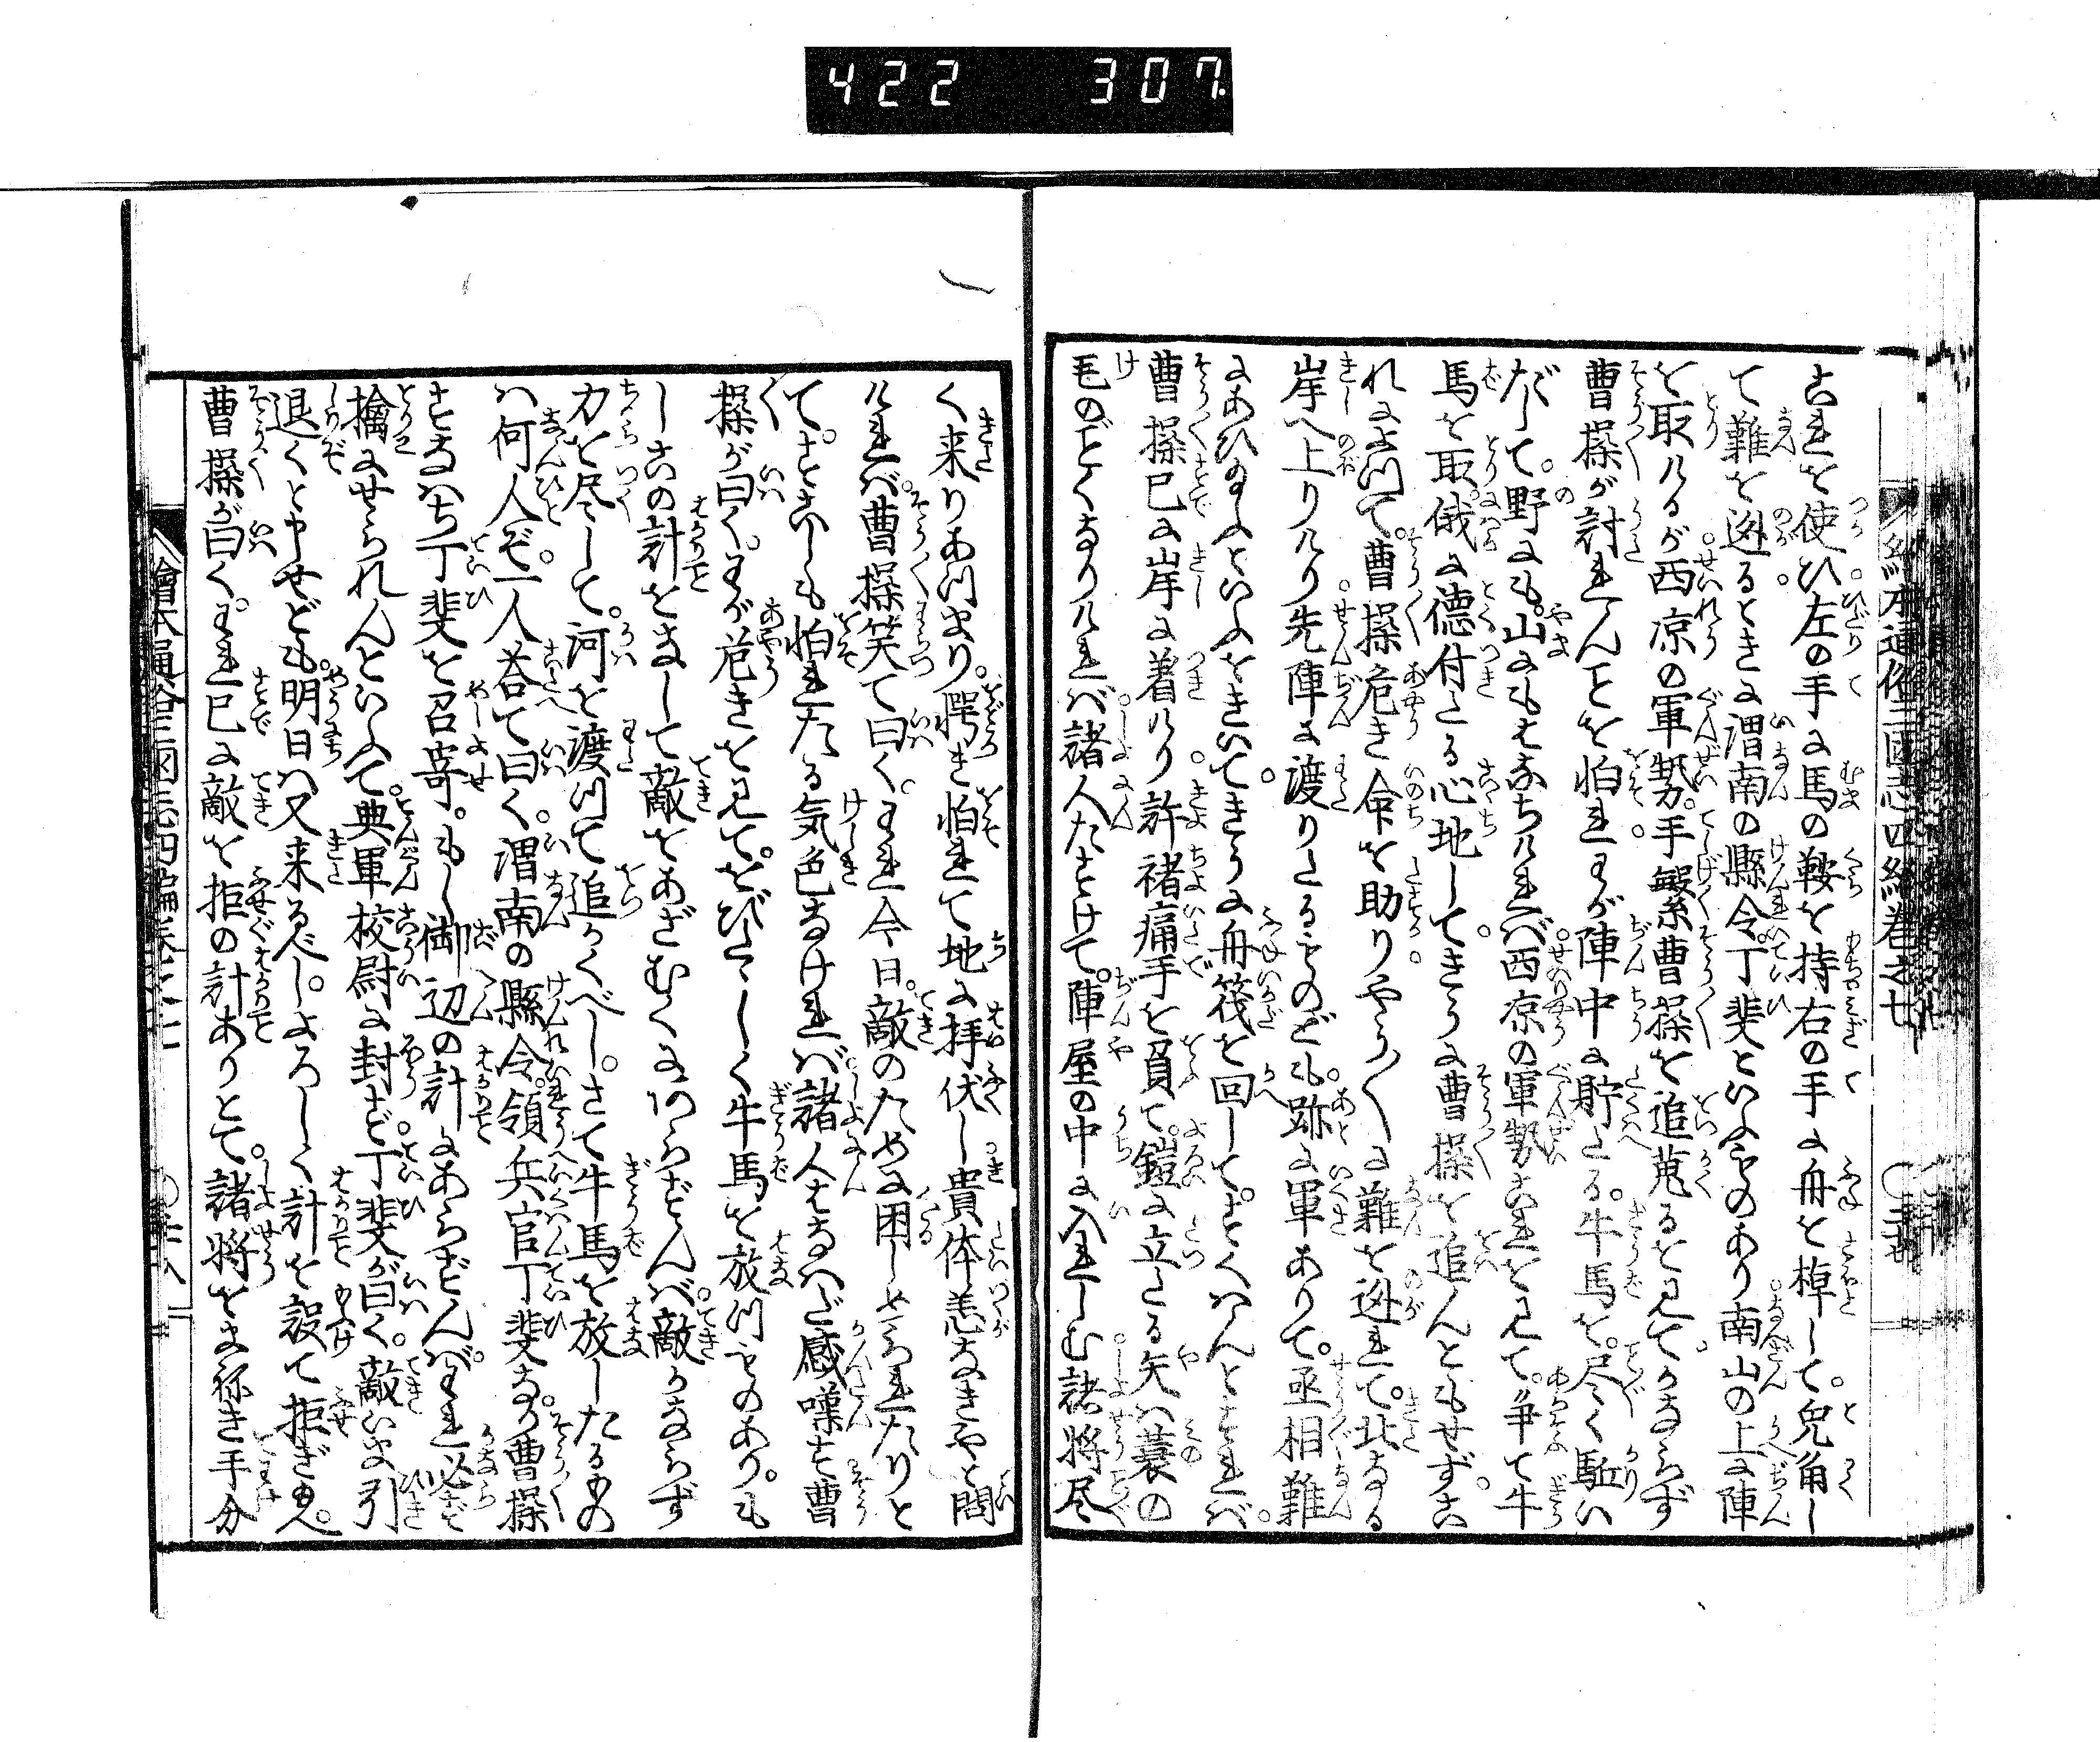 422 307
繪本通俗三國志四編卷之七
これを使ひ左の手に馬の鞍を持右の手に舟を棹して。兎角し
て難を迯るときに渭南の縣令丁斐といふものあり南山の上に陣
を取けるが西凉の軍勢。手繁曹操を追蒐るを見てかならず
曹操が討れんことを怕れわが陣中に貯たる。牛馬を。尽く駈い
だして。野にも山にもはなちければ西凉の軍勢これを見て。争て牛
馬を取。俄に德付たる心地して。きそうに曹操を追んともせず。こ
れによつて。曹操危き命を助りやう〱に難を迯れて。北なる
岸へ上りけり先陣に渡りたるものども。跡に軍ありて。丞相難
にあひ給ふといふをきいて。きうに舟筏を回して。すくはんとすれば。
曹操已に岸に着けり許褚痛手を負て。鎧に立たる矢は蓑の
毛のごとくなりければ諸人たすけて。陣屋の中に入れしむ諸将尽
く来りあつまり。愕き怕れて地に拝伏し貴体恙なきやと問
ければ。曹操笑て曰く。われ今日。敵のために困しめられたりと
て。すこしも怕れたる気色なければ。諸人はなはだ感嘆す曹
操が曰く。わが危きを見て。をびたゝしく牛馬を放つものあり。も
しこの計をなして敵をあざむくにあらずんば。敵かならず
力を尽して。河を渡つて追かくべし。さて牛馬を放したるもの
は何人ぞ。一人荅て曰く。渭南の縣令。領兵官丁斐なり。曹操
すなはち丁斐を召寄。もし御辺の計にあらずんば。われ必ず
擒にせられんといふて。典軍校尉に封ず丁斐が曰く。敵いま引
退くと申せども。明日は又来るべし。よろしく計を設て拒ぎ給へ。
曹操が曰く。われ已に敵を拒の計ありとて。諸将をまねき手分
繪本通俗三國志四編卷之七